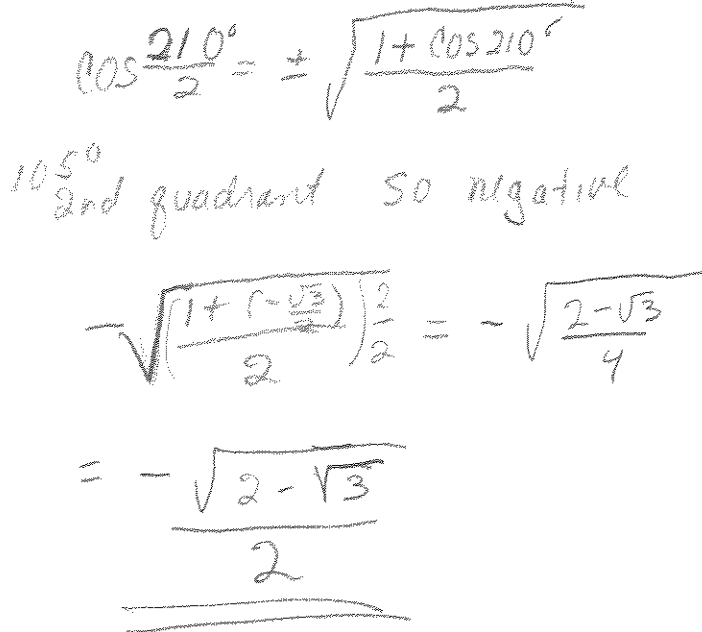 cos 210°/2 = ± √((1 + cos 210°)/2)
105°
2nd quadrant so negative
-√(((1 + (-√3/2))/2) 2/2) = -√((2-√3)/4)
= -√(2 - √3)/2